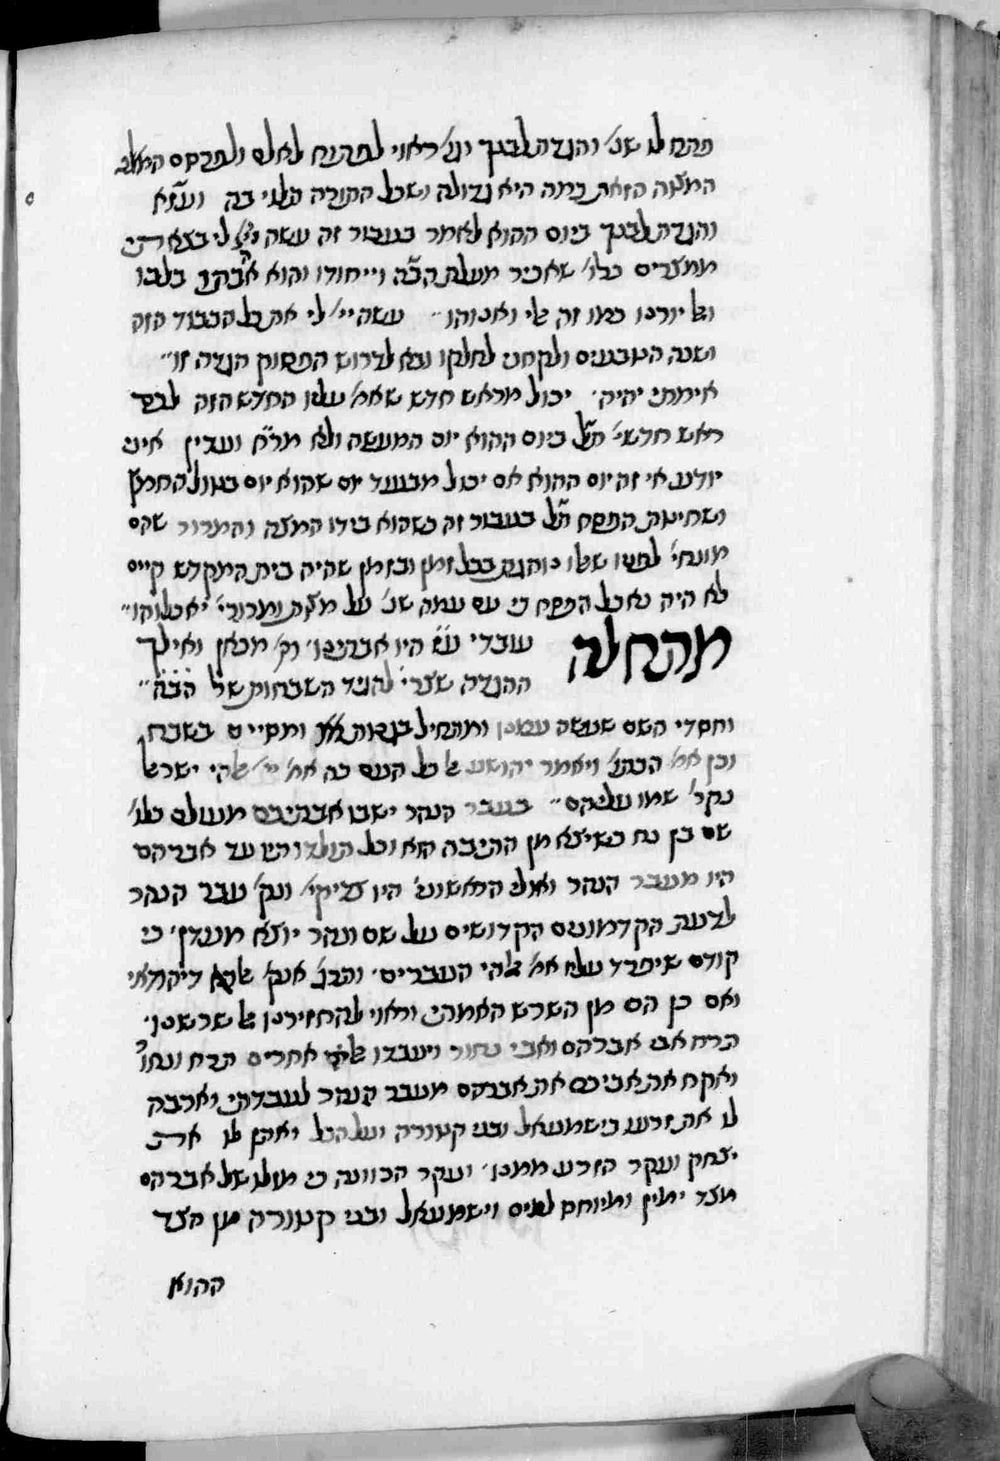 פתח לו שנ' והגדת לבנך וגו' ראוי לפתוח לאלם ולפרסם
המצוה הזאת כמה היא גדולה ושכל התורה תלוי בה
והגדת לבנך ביום ההוא לאמר בעבור זה עשה יי' לי בצאתי
ממצרים כלו' שאכיר מעלת הב"ה וייחודו והוא בלבו
זה אלי ואנוהו עשה יי' לי את כל הכבוד הזה
ושנה המטבעים ולקחני לחלקו ובא לדרוש הפסוק הגדה זו
אימתי יהיה יכול מראש חדש שאמ' עליו החדש הזה לכם
ראש חדשי' ת"ל ביום ההוא יום המעשה ולא מר"ח ועדין איני
יודע אי זה יום ההוא אם יכול מבעוד יום שהוא יום בטול החמץ
ושחיטת הפסח ת"ל בעבור זה כשהוא בידו המצה והמרור שהם
מונחי' לפניו שאלו נוהגות בכל זמן ובזמן שהיה בית המקדש קיים
לא היה נאכל הפסח כי עם עמהם שנ' על מצות ומרורי' יאכלוהו
מתחלה עובדי ע"ז היו אבותינו רק מכאן ואילך
ההגדה שצרי' להגיד השבחות של הב"ה
וחסדי השם שעשה עמנו ומתחיל בגנות ומסיים בשבח
וכן אמ' הכתו' ויאמר יהושע אל כל העם כה אמ' יי' אלהי ישראל
נקר' שמו עליהם בעבר הנהר ישבו אבותיכם מעולם כלו'
שם בן נח כשיצא מן התיבה הוא וכל תולדותיו עד אברהם
היו מעבר הנהר ואולי הראשוני' היו צדיקי' ונק' עבר הנהר
לדעת הקדמונים הקדושים על שם ונהר יוצא מעדן כי
קודם שיפרד עליו אמ' אלהי העברים
ואם כן הם מן השרש האמתי וראוי להחזירנו אל שרשנו
תרח אבי אברהם ואבי נחור ויעבדו אלהי' אחרים תרח ונחו'
ואקח את אביכם את אברהם מעבר הנהר לעבדתי וארבה
לו את זרעו בישמעאל ובני קטורה ועל הכל ואתן לו את
יצחק ועקר הזרע ממנו ועקר הכוונה כי מזלו של אברהם
מצד ימין ומיוחס למים וישמעאל ובני קטורה מן הצד
ההוא